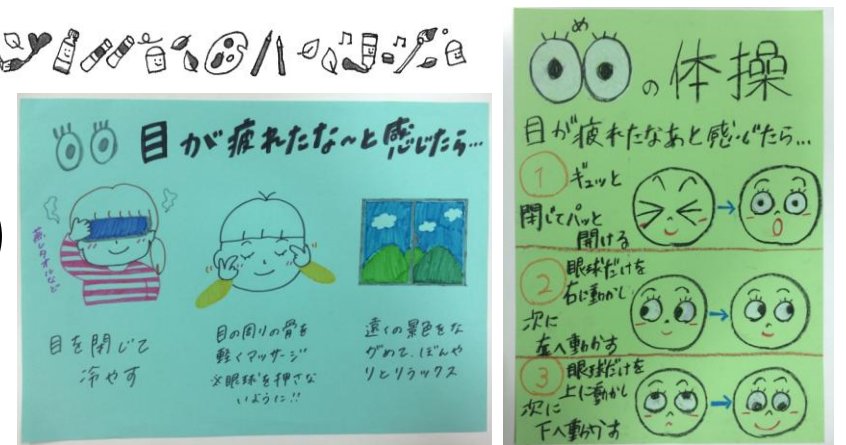 目が疲れたな~と感じたら…
蒸しタオルなど
目を閉じて
冷やす
目の周りの骨を
軽くマッサージ
※眼球を押さな
いように!!
遠くの景色をな
がめて、ぼんや
りとリラックス
め
の体操
目が疲れたなあと感じたら…
① ギュッと
閉じてパッと
開ける
② 眼球だけを
右に動かし
次に
左へ動かす
③ 眼球だけを
上に動かし
次に
下へ動かす